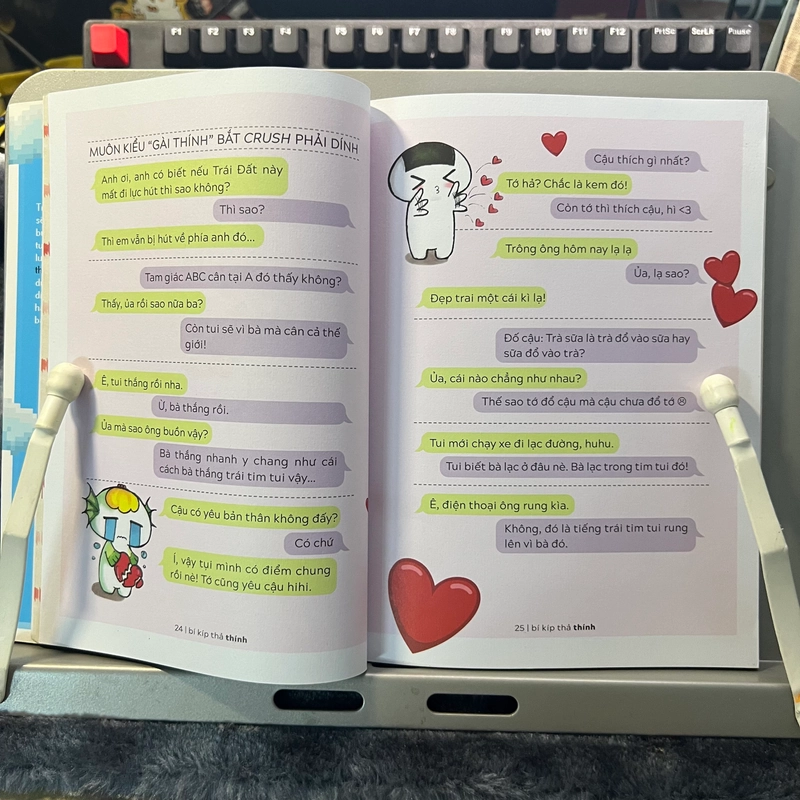 F1 F2 F3 F4 F5 F6 F7 F8 F9 F10 F11 F12 PrtSc ScrLk Pause
MUÔN KIỂU “GÀI THÍNH” BẮT CRUSH PHẢI DÍNH
Anh ơi, anh có biết nếu Trái Đất này
mất đi lực hút thì sao không?
Thì sao?
Thì em vẫn bị hút về phía anh đó...
Tam giác ABC cân tại A đó thấy không?
Thấy, ủa rồi sao nữa ba?
Còn tui sẽ vì bà mà cân cả thế
giới!
Ê, tui thắng rồi nha.
Ừ, bà thắng rồi.
Ủa mà sao ông buồn vậy?
Bà thắng nhanh y chang như cái
cách bà thắng trái tim tui vậy...
Cậu có yêu bản thân không đấy?
Có chứ
Í, vậy tụi mình có điểm chung
rồi nè! Tớ cũng yêu cậu hihi.
24 | bí kíp thả thính
Cậu thích gì nhất?
Tớ hả? Chắc là kem đó!
Còn tớ thì thích cậu, hi <3
Trông ông hôm nay lạ lạ
Ủa, lạ sao?
Đẹp trai một cái kì lạ!
Đố cậu: Trà sữa là trà đổ vào sữa hay
sữa đổ vào trà?
Ủa, cái nào chẳng như nhau?
Thế sao tớ đổ cậu mà cậu chưa đổ tớ ☹
Tui mới chạy xe đi lạc đường, huhu.
Tui biết bà lạc ở đâu nè. Bà lạc trong tim tui đó!
Ê, điện thoại ông rung kìa.
Không, đó là tiếng trái tim tui rung
lên vì bà đó.
25 | bí kíp thả thính